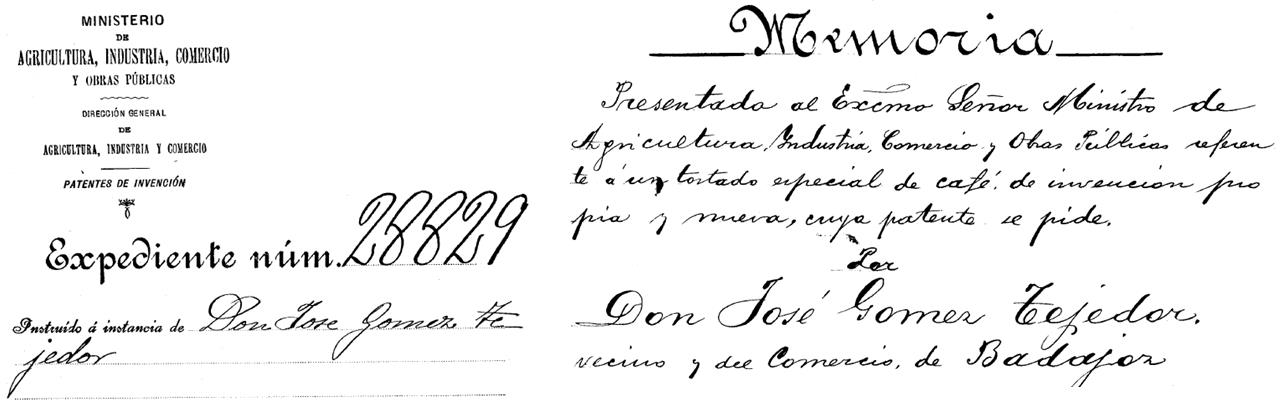 MINISTERIO
DE
AGRICULTURA, INDUSTRIA, COMERCIO
Y OBRAS PÚBLICAS
DIRECCIÓN GENERAL
DE
AGRICULTURA, INDUSTRIA Y COMERCIO
PATENTES DE INVENCIÓN
Expediente núm. 28829
Instruído á instancia de Don Jose Gomez Te
jedor
Memoria
Presentada al Excmo Señor Ministro de
Agricultura, Industria, Comercio y Obras Públicas referen
te á un tostado especial de café, de invencion pro
pia y nueva, cuya patente se pide.
Por
Don José Gomez Tejedor.
vecino y del Comercio, de Badajoz